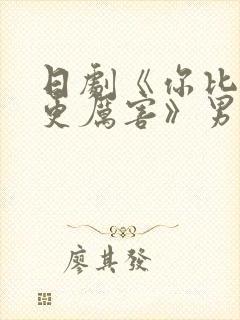 日劇《你比
更厲害》男
廖其發